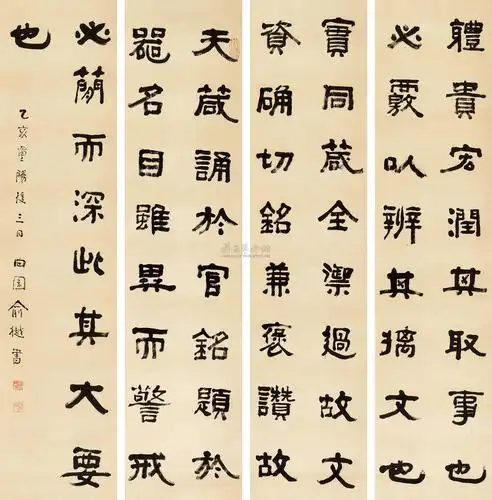 體貴宏潤其取事也
必覈以辨其摛文也
實同箴全禦過故文
資确切銘兼褒讚故
夫箴誦於官銘題於
器名目雖異而警戒
必簡而深此其大要
也
乙亥重陽後三日曲園俞樾書